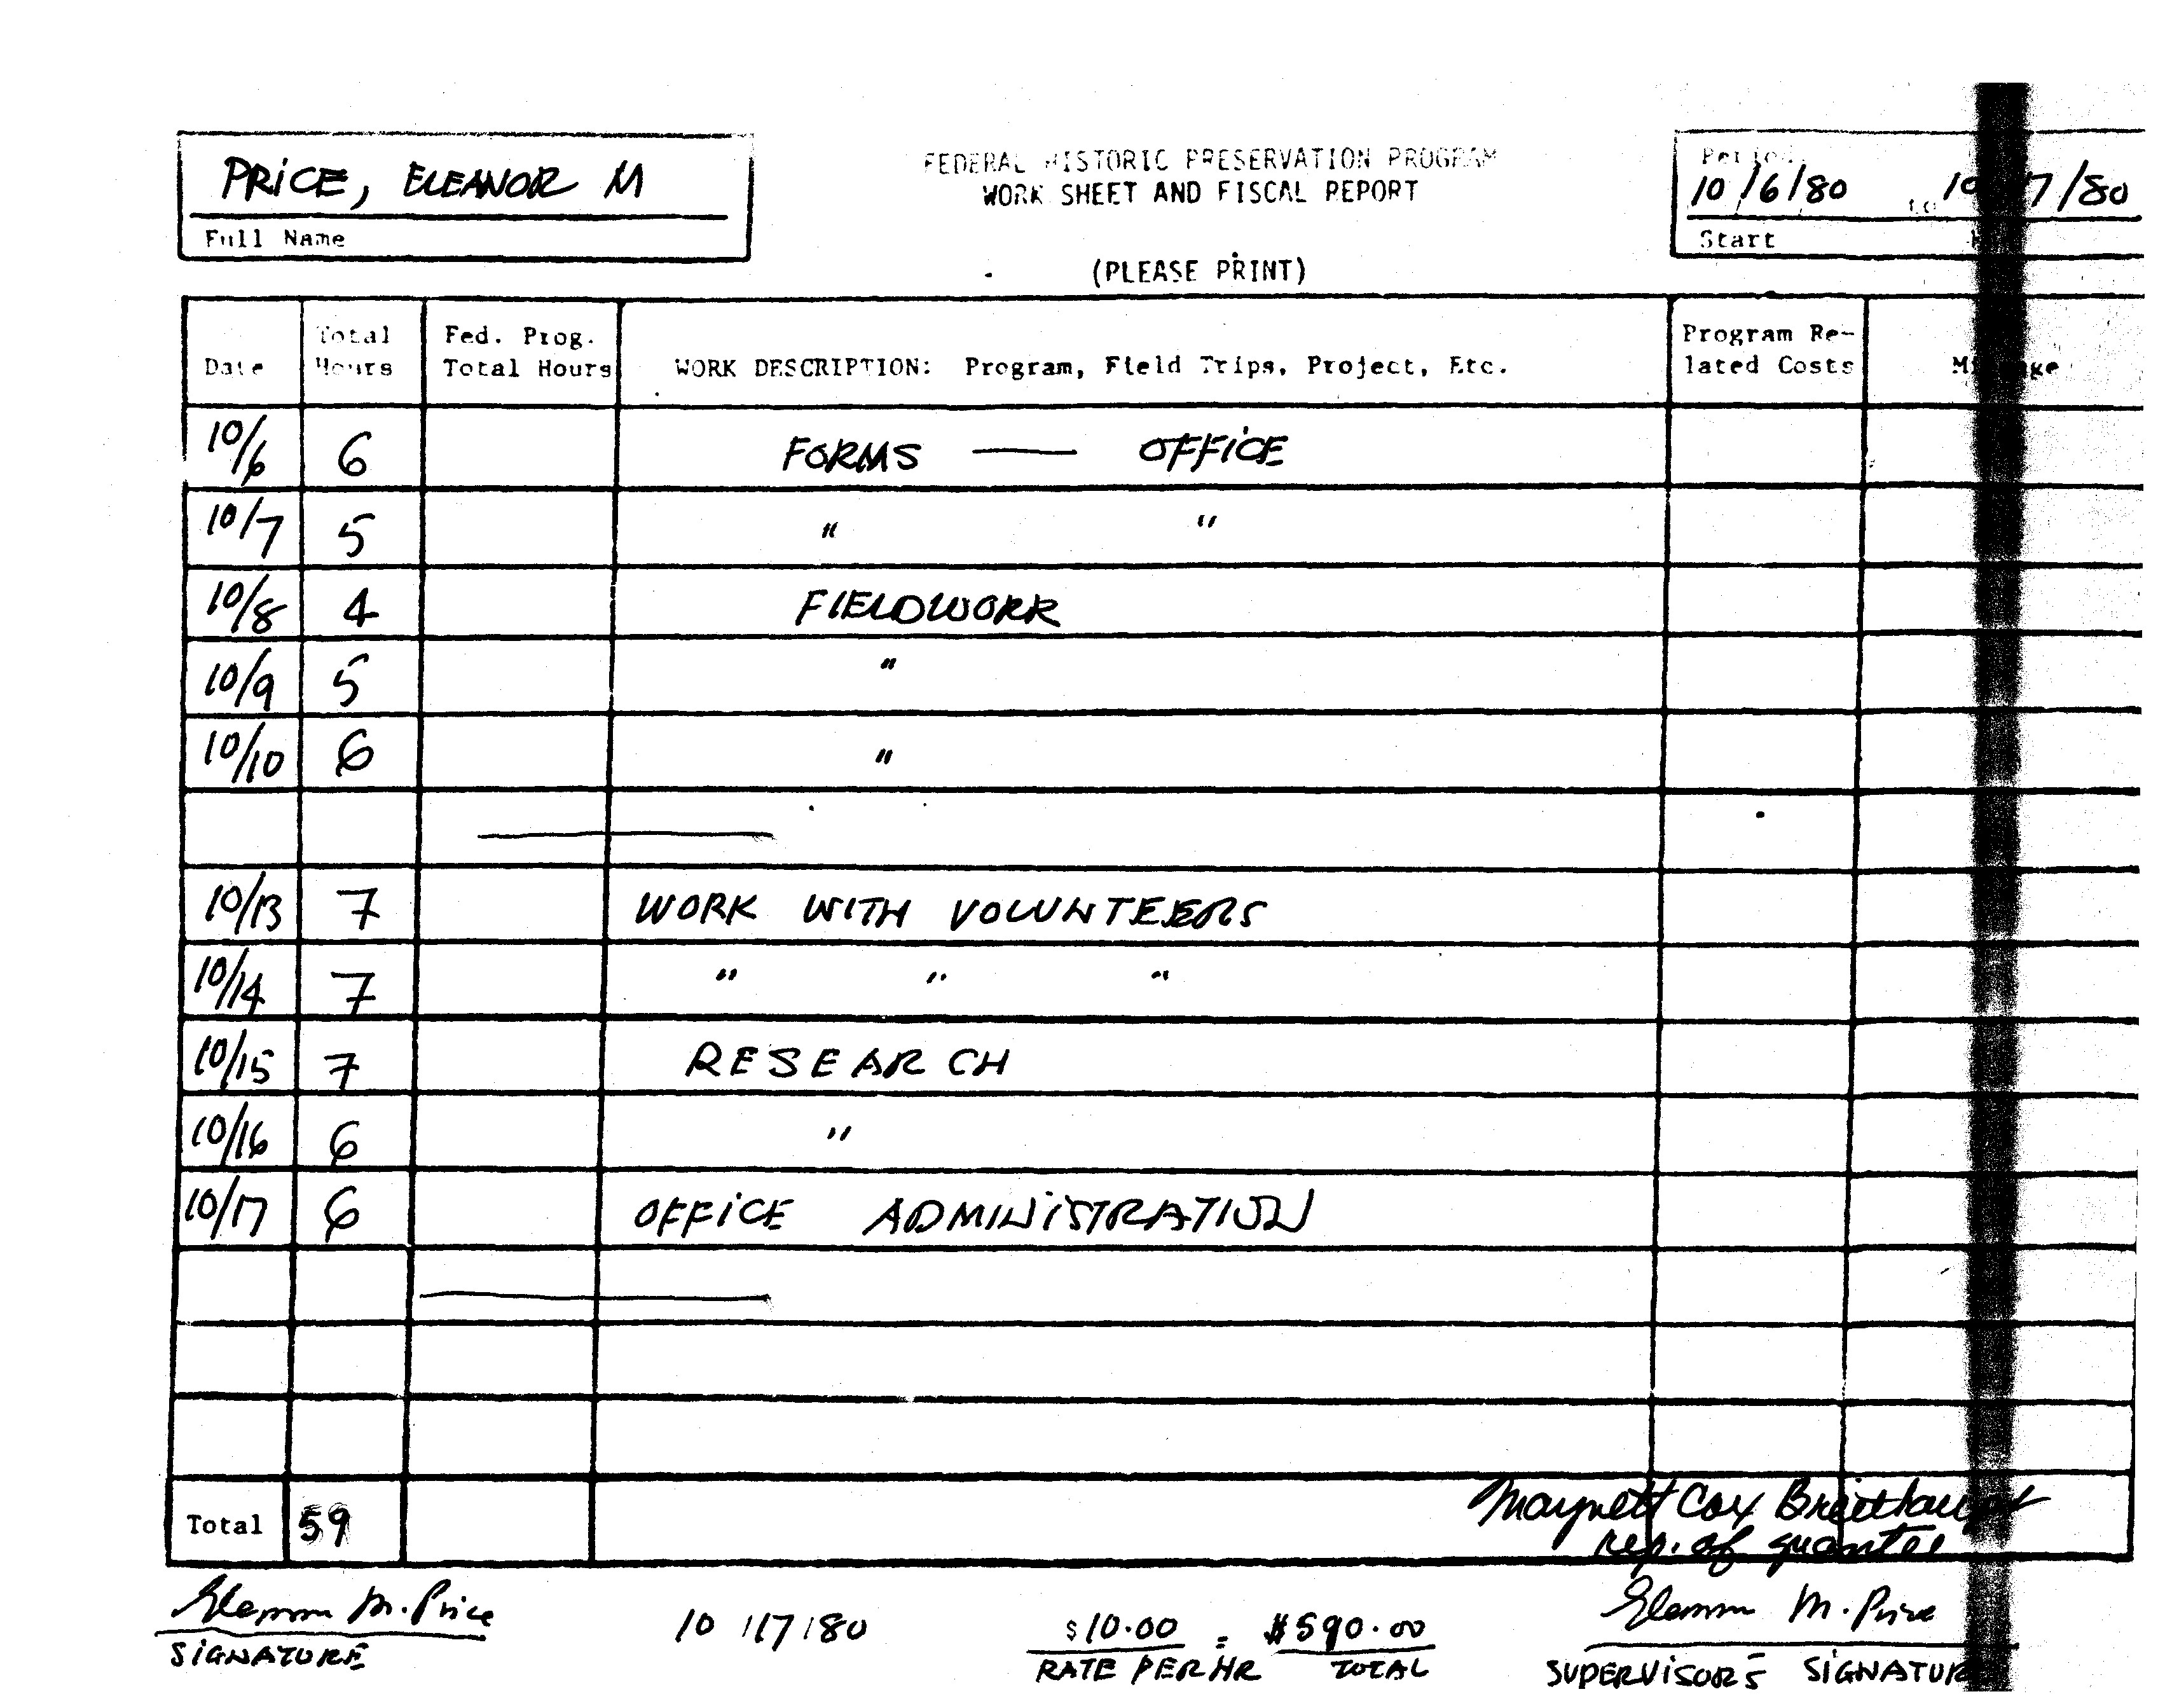 PRiCE, ELEANOR M
Full Name
FEDERAL HISTORIC PRESERVATION PROGRAM
WORK SHEET AND FISCAL REPORT
(PLEASE PRINT)
Period
10/6/80 to 10 7/80
Start
Date
Total Hours
Fed. Prog. Total Hours
WORK DESCRIPTION: Program, Field Trips, Project, Etc.
Program Re-
lated Costs
Mileage
10/6 6 FORMS — OFFiCE
10/7 5 " "
10/8 4 FIELDWORK
10/9 5 "
10/10 6 "
10/13 7 WORK WITH VOLUNTEERS
10/14 7 " " "
10/15 7 RESEARCH
10/16 6 "
10/17 6 OFFiCE ADMINiSTRATION
Total 59
Maynett Cox Breithaupt
rep. of grantee
Eleanor M. Price
SiGNATURE
10/17/80
$10.00 = $590.00
RATE PER HR TOTAL
Eleanor M. Price
SUPERViSOR'S SiGNATUR